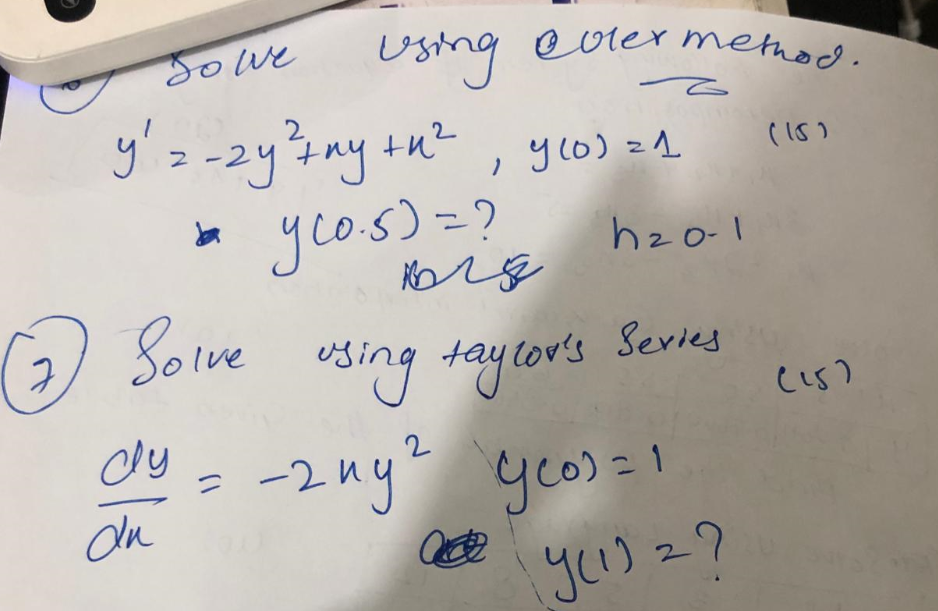 Solve using euler method.
y' = -2y² + xy + x² , y(0) = 1 (15)
y(0.5) = ? h = 0.1
7 Solve using taylor's Series (15)
dy/dx = -2xy² y(0) = 1
y(1) = ?